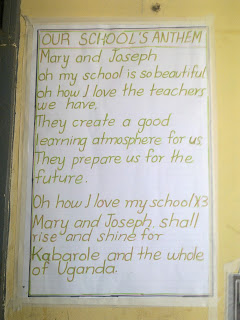 OUR SCHOOL'S ANTHEM
Mary and Joseph
oh my school is so beautiful
oh how I love the teachers
we have,
They create a good
learning atmosphere for us.
They prepare us for the
future.
Oh how I love my school X3
Mary and Joseph shall
rise and shine for
Kabarole and the whole
of Uganda.